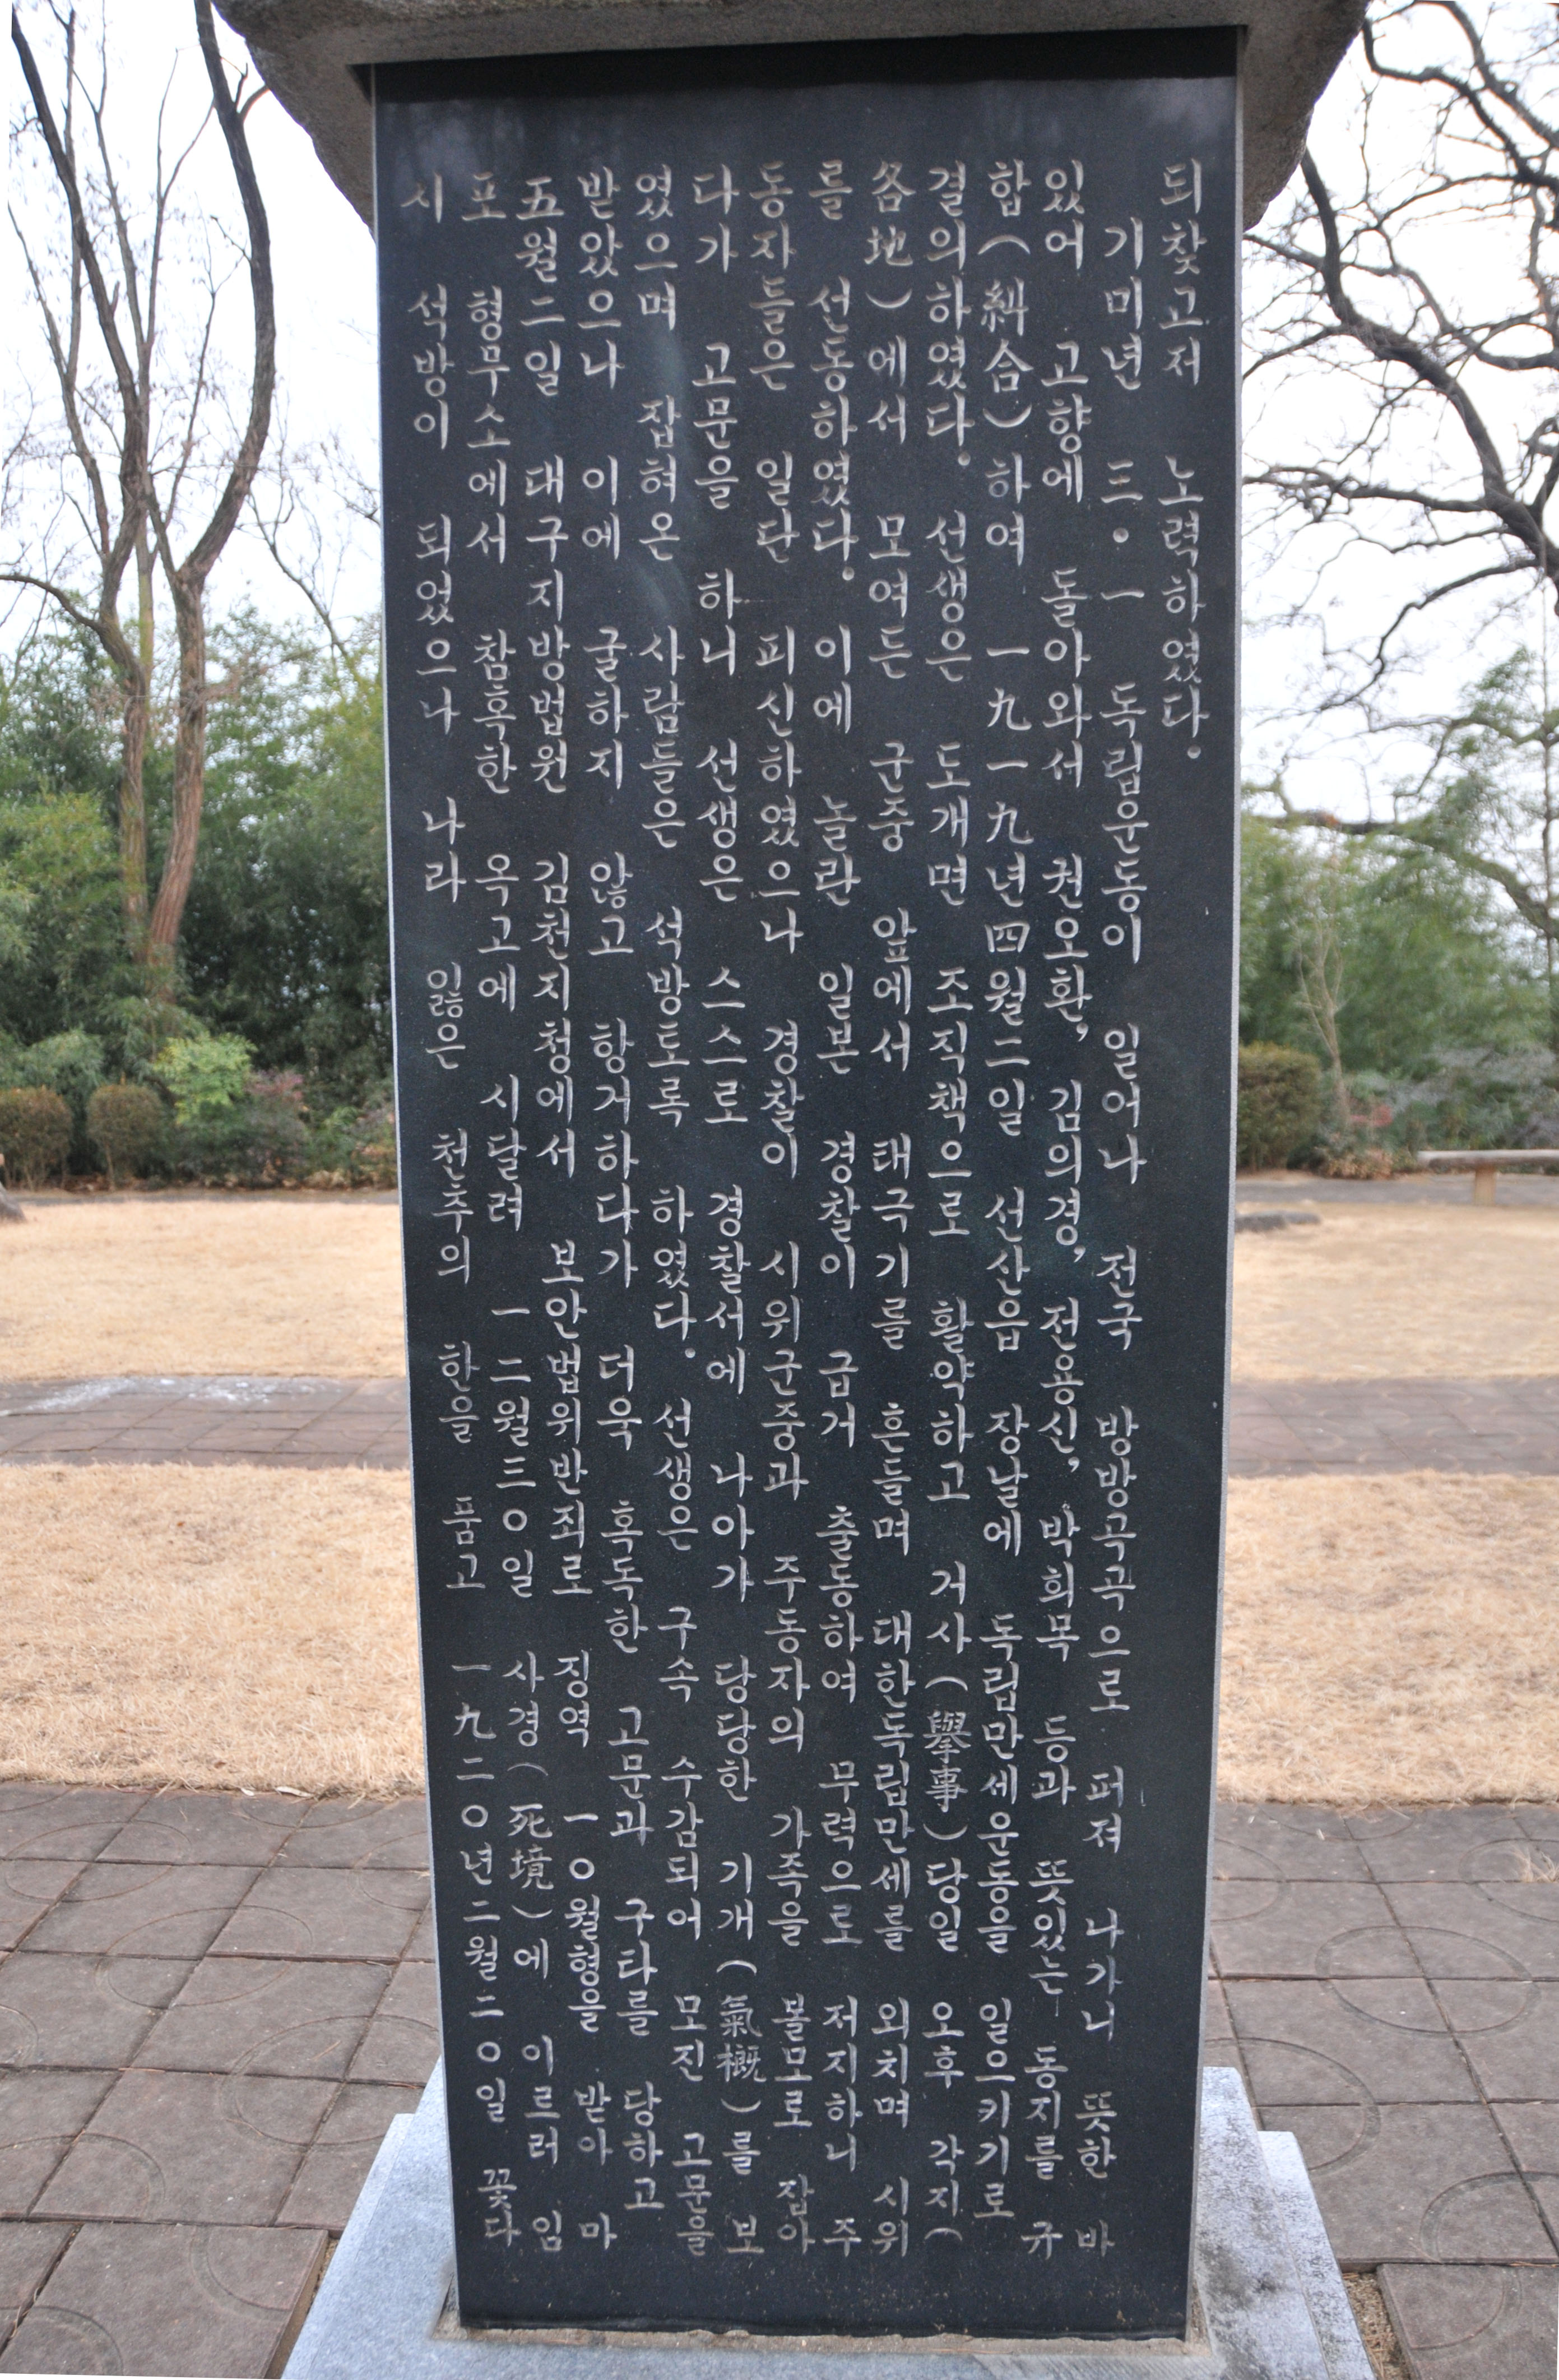 되찾고저 노력하였다.
기미년 三·一 독립운동이 일어나 전국 방방곡곡으로 퍼져 나가니 뜻한 바
있어 고향에 돌아와서 권오환, 김의경, 전용신, 박희목 등과 뜻있는 동지를 규
합(糾合)하여 一九一九년四월二일 선산읍 장날에 독립만세운동을 일으키기로
결의하였다. 선생은 도개면 조직책으로 활약하고 거사(擧事)당일 오후 각지(
各地)에서 모여든 군중 앞에서 태극기를 흔들며 대한독립만세를 외치며 시위
를 선동하였다. 이에 놀란 일본 경찰이 급거 출동하여 무력으로 저지하니 주
동자들은 일단 피신하였으나 경찰이 시위군중과 주동자의 가족을 볼모로 잡아
다가 고문을 하니 선생은 스스로 경찰서에 나아가 당당한 기개(氣槪)를 보
였으며 잡혀온 사람들은 석방토록 하였다. 선생은 구속 수감되어 모진 고문을
받았으나 이에 굴하지 않고 항거하다가 더욱 혹독한 고문과 구타를 당하고
五월二일 대구지방법원 김천지청에서 보안법위반죄로 징역 一○월형을 받아 마
포 형무소에서 참혹한 옥고에 시달려 一二월三○일 사경(死境)에 이르러 임
시 석방이 되었으나 나라 잃은 천추의 한을 품고 一九二○년二월二○일 꽃다